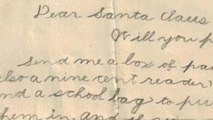 Dear Santa Claus
Will you p
send me a box of pa
also a nine cent reader
nd a school bag to pu
hem in. and